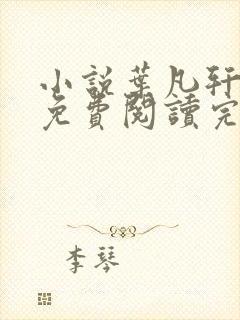 小說葉凡軒
免費閱讀完
李琴